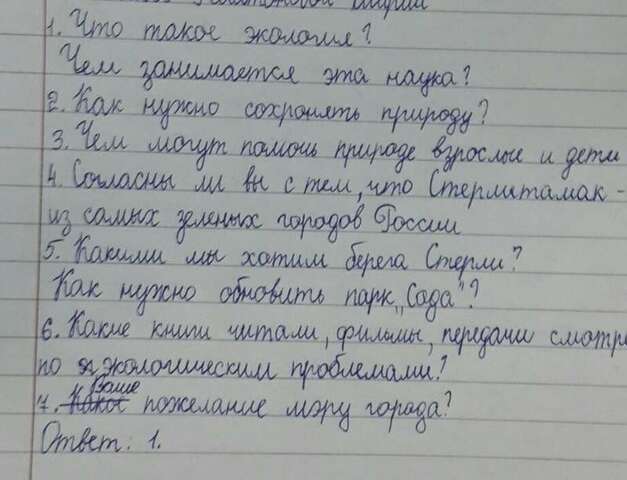 1. Что такое экология?
Чем занимается эта наука?
2. Как нужно сохранять природу?
3. Чем могут помочь природе взрослые и дети
4. Согласны ли вы с тем, что Стерлитамак -
из самых зеленых городов России
5. Какими мы хотим берега Стерли?
Как нужно обновить парк „Сода"?
6. Какие книги читали, фильмы, передачи смотре
по экологическим проблемами?
Ваше
7. Какое пожелание мэру города?
Ответ: 1.